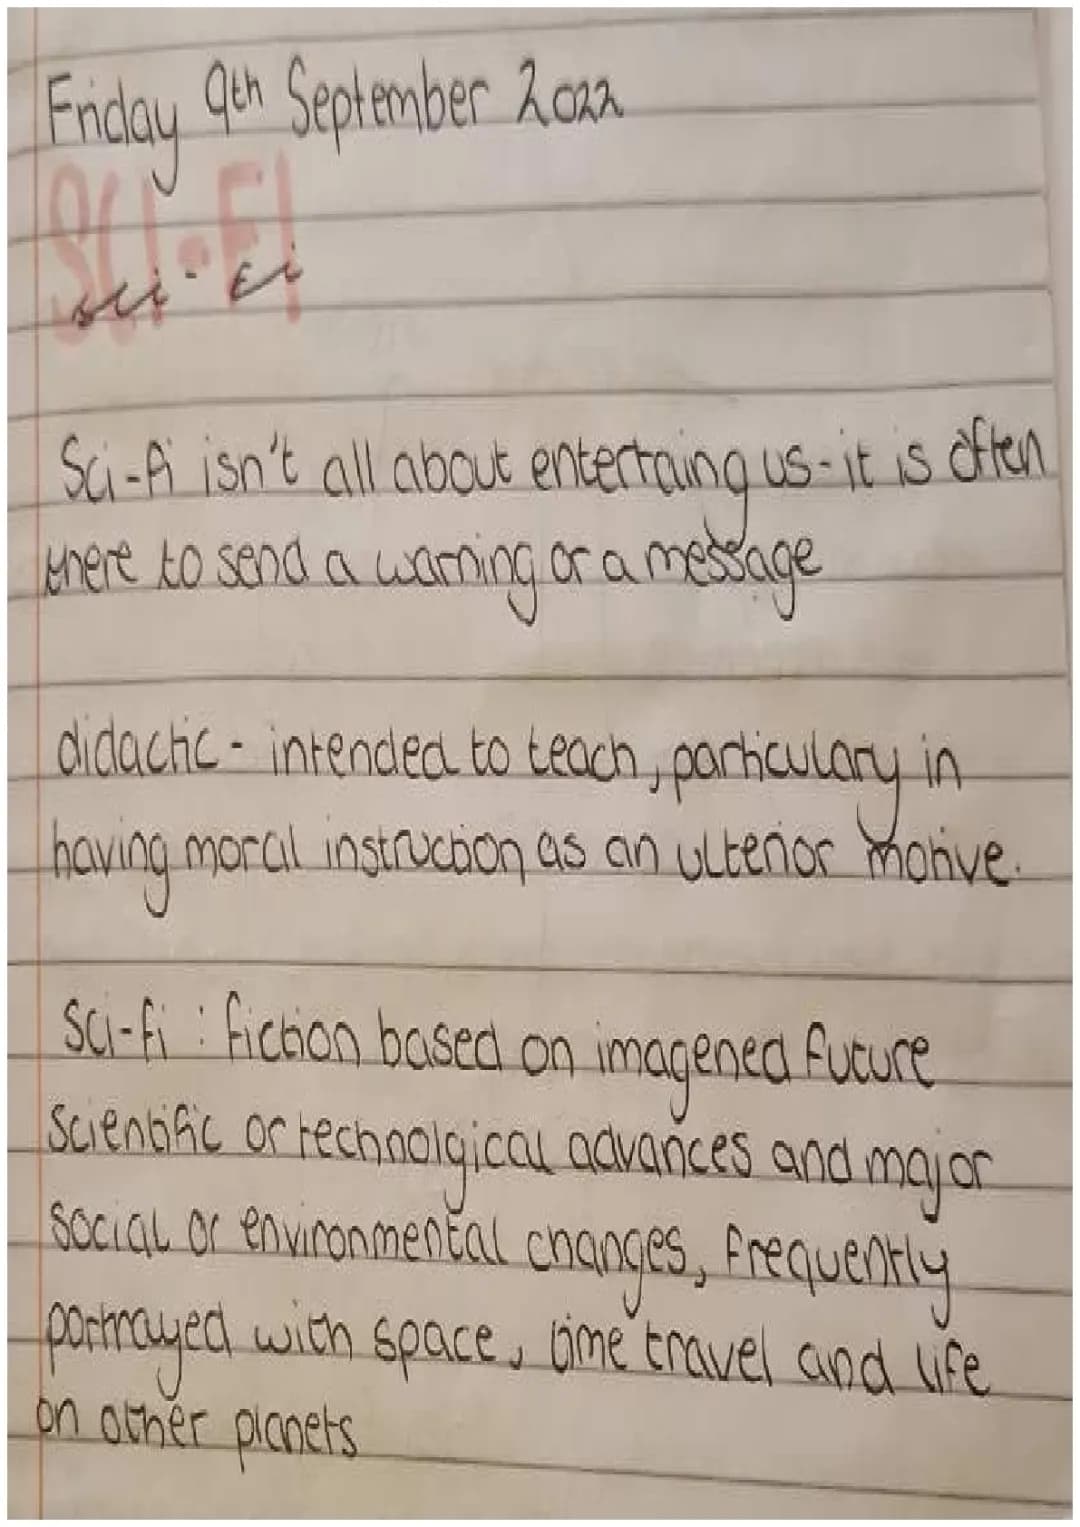 Friday 9th September 2022
SCI-FI
sci-fi
Sci-fi isn't all about entertaing us - it is often
there to send a warning or a message
didactic - intended to teach, particulary in
having moral instruction as an ulterior motive.
Sci-fi : fiction based on imagened future
scientific or technolgical advances and major
social or environmental changes, frequently
portrayed with space, time travel and life
on other planets